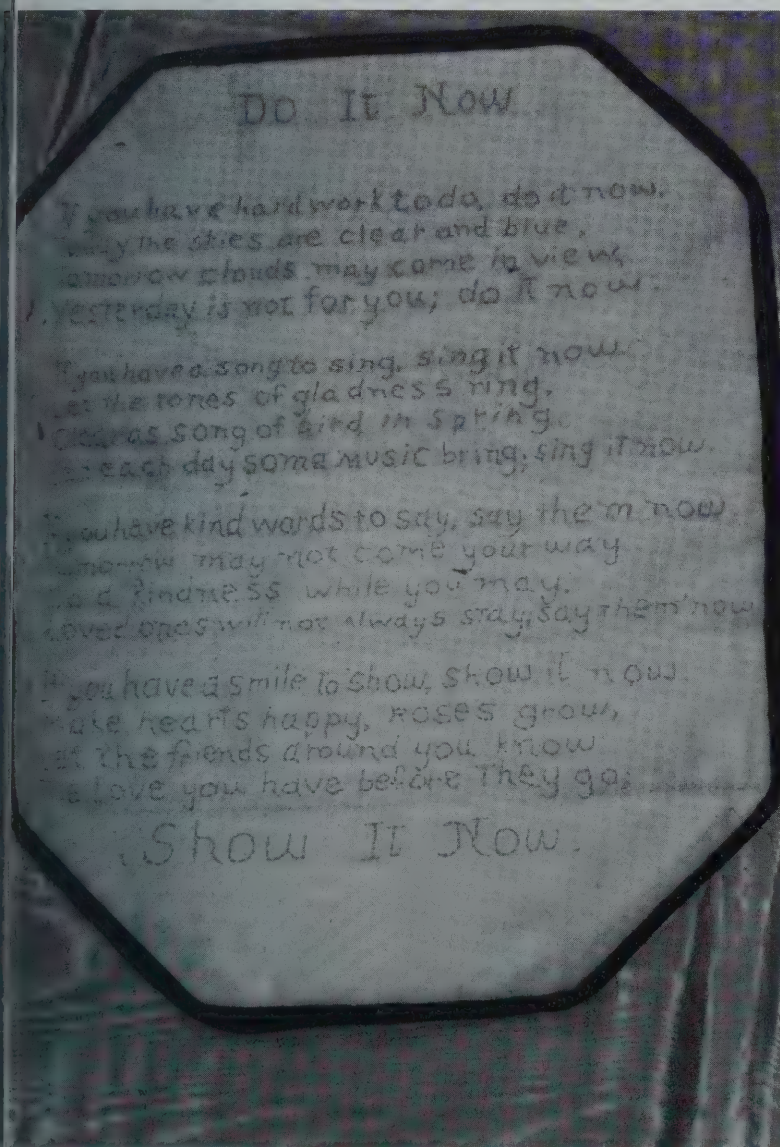 Do It Now
If you have hard work to do, do it now.
Today the skies are clear and blue,
Tomorrow clouds may come in view,
Yesterday is not for you; do it now.
If you have a song to sing, sing it now.
Let the tones of gladness ring,
Clear as song of bird in spring.
each day some music bring; sing it now.
If you have kind words to say, say them now.
may not come your way
kindness while you may.
Loved ones will not always stay; say them now
If you have a smile to show, show it now.
Make hearts happy, roses grow,
Let the friends around you know
The Love you have before They go;
Show It Now.